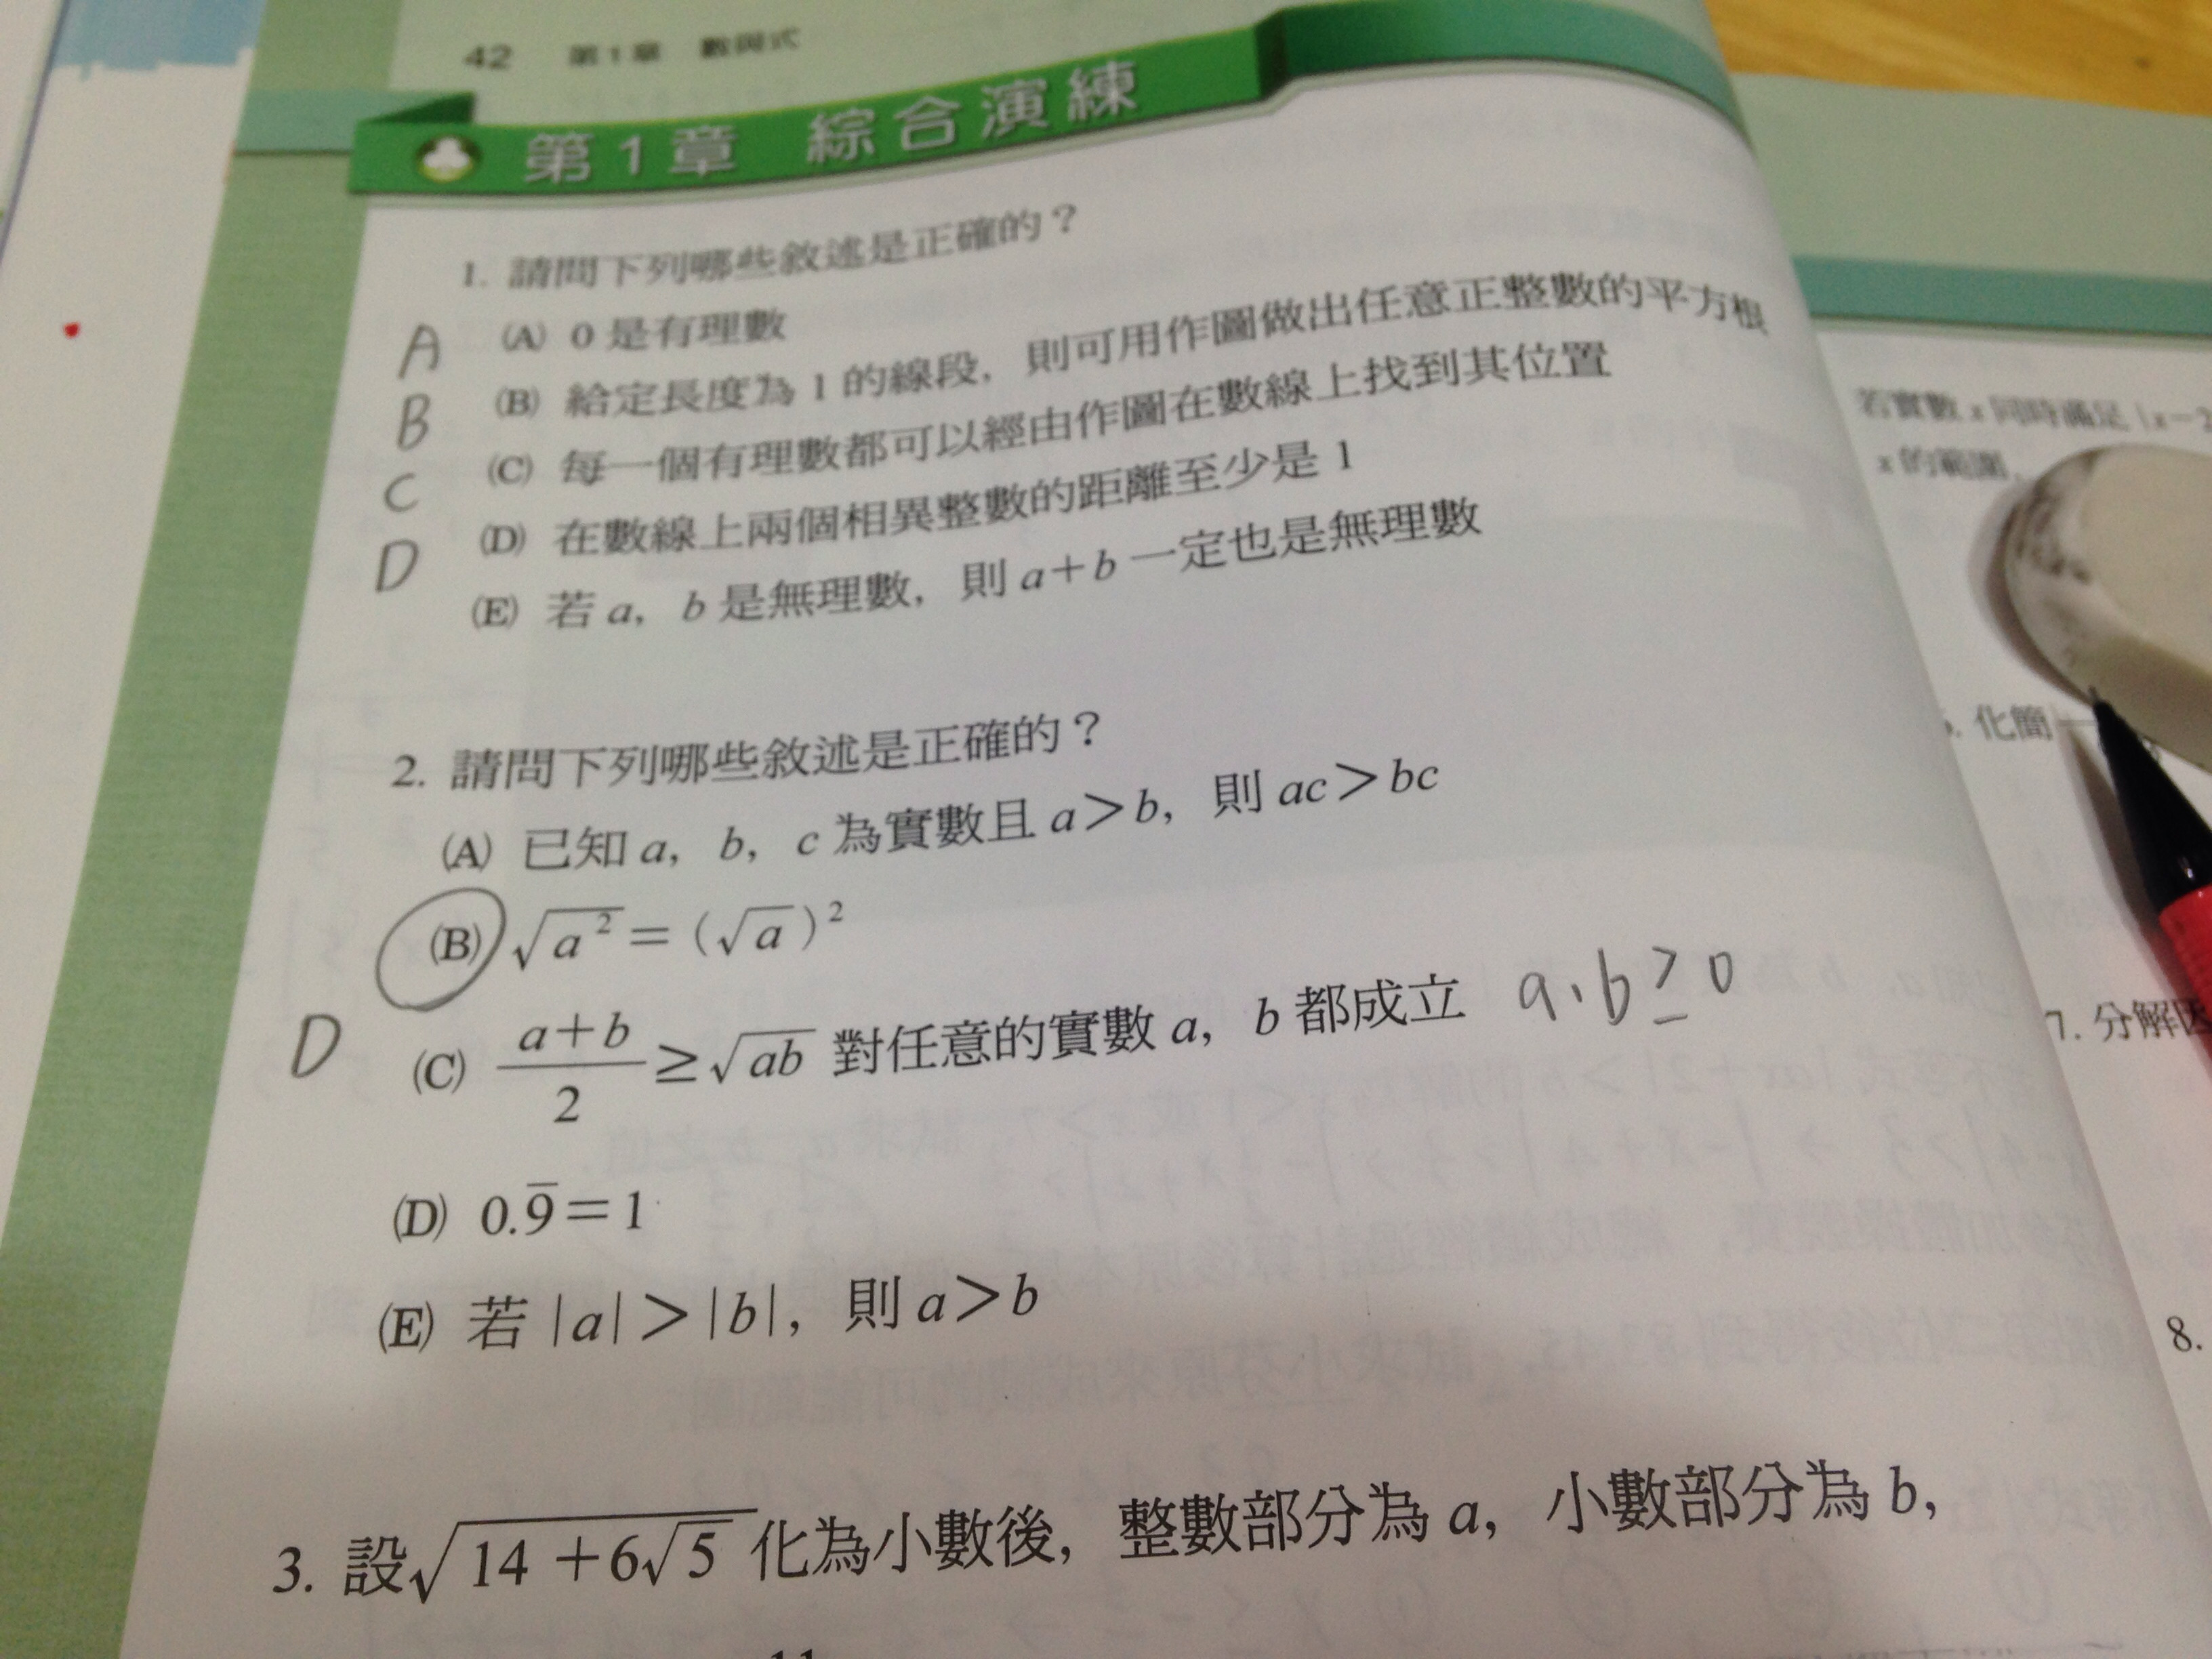 42 第1章 數與式
第1章 綜合演練
1. 請問下列哪些敘述是正確的？
A (A) 0 是有理數
B (B) 給定長度為 1 的線段，則可用作圖做出任意正整數的平方根
C (C) 每一個有理數都可以經由作圖在數線上找到其位置
D (D) 在數線上兩個相異整數的距離至少是 1
(E) 若 a，b 是無理數，則 a+b 一定也是無理數
2. 請問下列哪些敘述是正確的？
(A) 已知 a，b，c 為實數且 a>b，則 ac>bc
(B) √a² = (√a)²
D (C) (a+b)/2 ≥ √ab 對任意的實數 a，b 都成立 a、b ≥ 0
(D) 0.9̅=1
(E) 若 |a|>|b|，則 a>b
3. 設√(14+6√5) 化為小數後，整數部分為 a，小數部分為 b，
若實數 x 同時滿足 |x-2
x 的範圍。
化簡
7. 分解因
8.